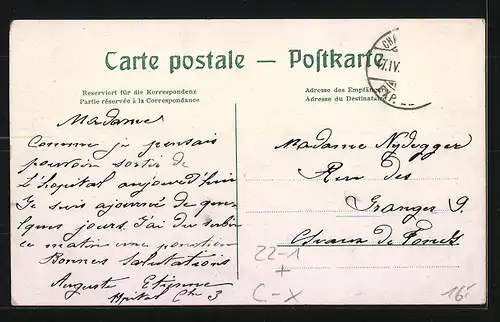 Carte postale — Postkarte
Reserviert für die Korrespondenz
Partie réservée à la Correspondance
Adresse des Empfäng
Adresse du Destinata
CHA
IV.
Madame
Comme je pensais
pouvoir sortir de
L'hopital aujourd'hui
Je suis ajourné de quel-
ques jours. J'ai du subir
ce matin une ponction
Bonnes Salutations
Auguste Etienne
Hpital Ch 3
Madame Nydegger
Rue des
Granges 9.
Chaux de Fonds
22-1
+
C-X